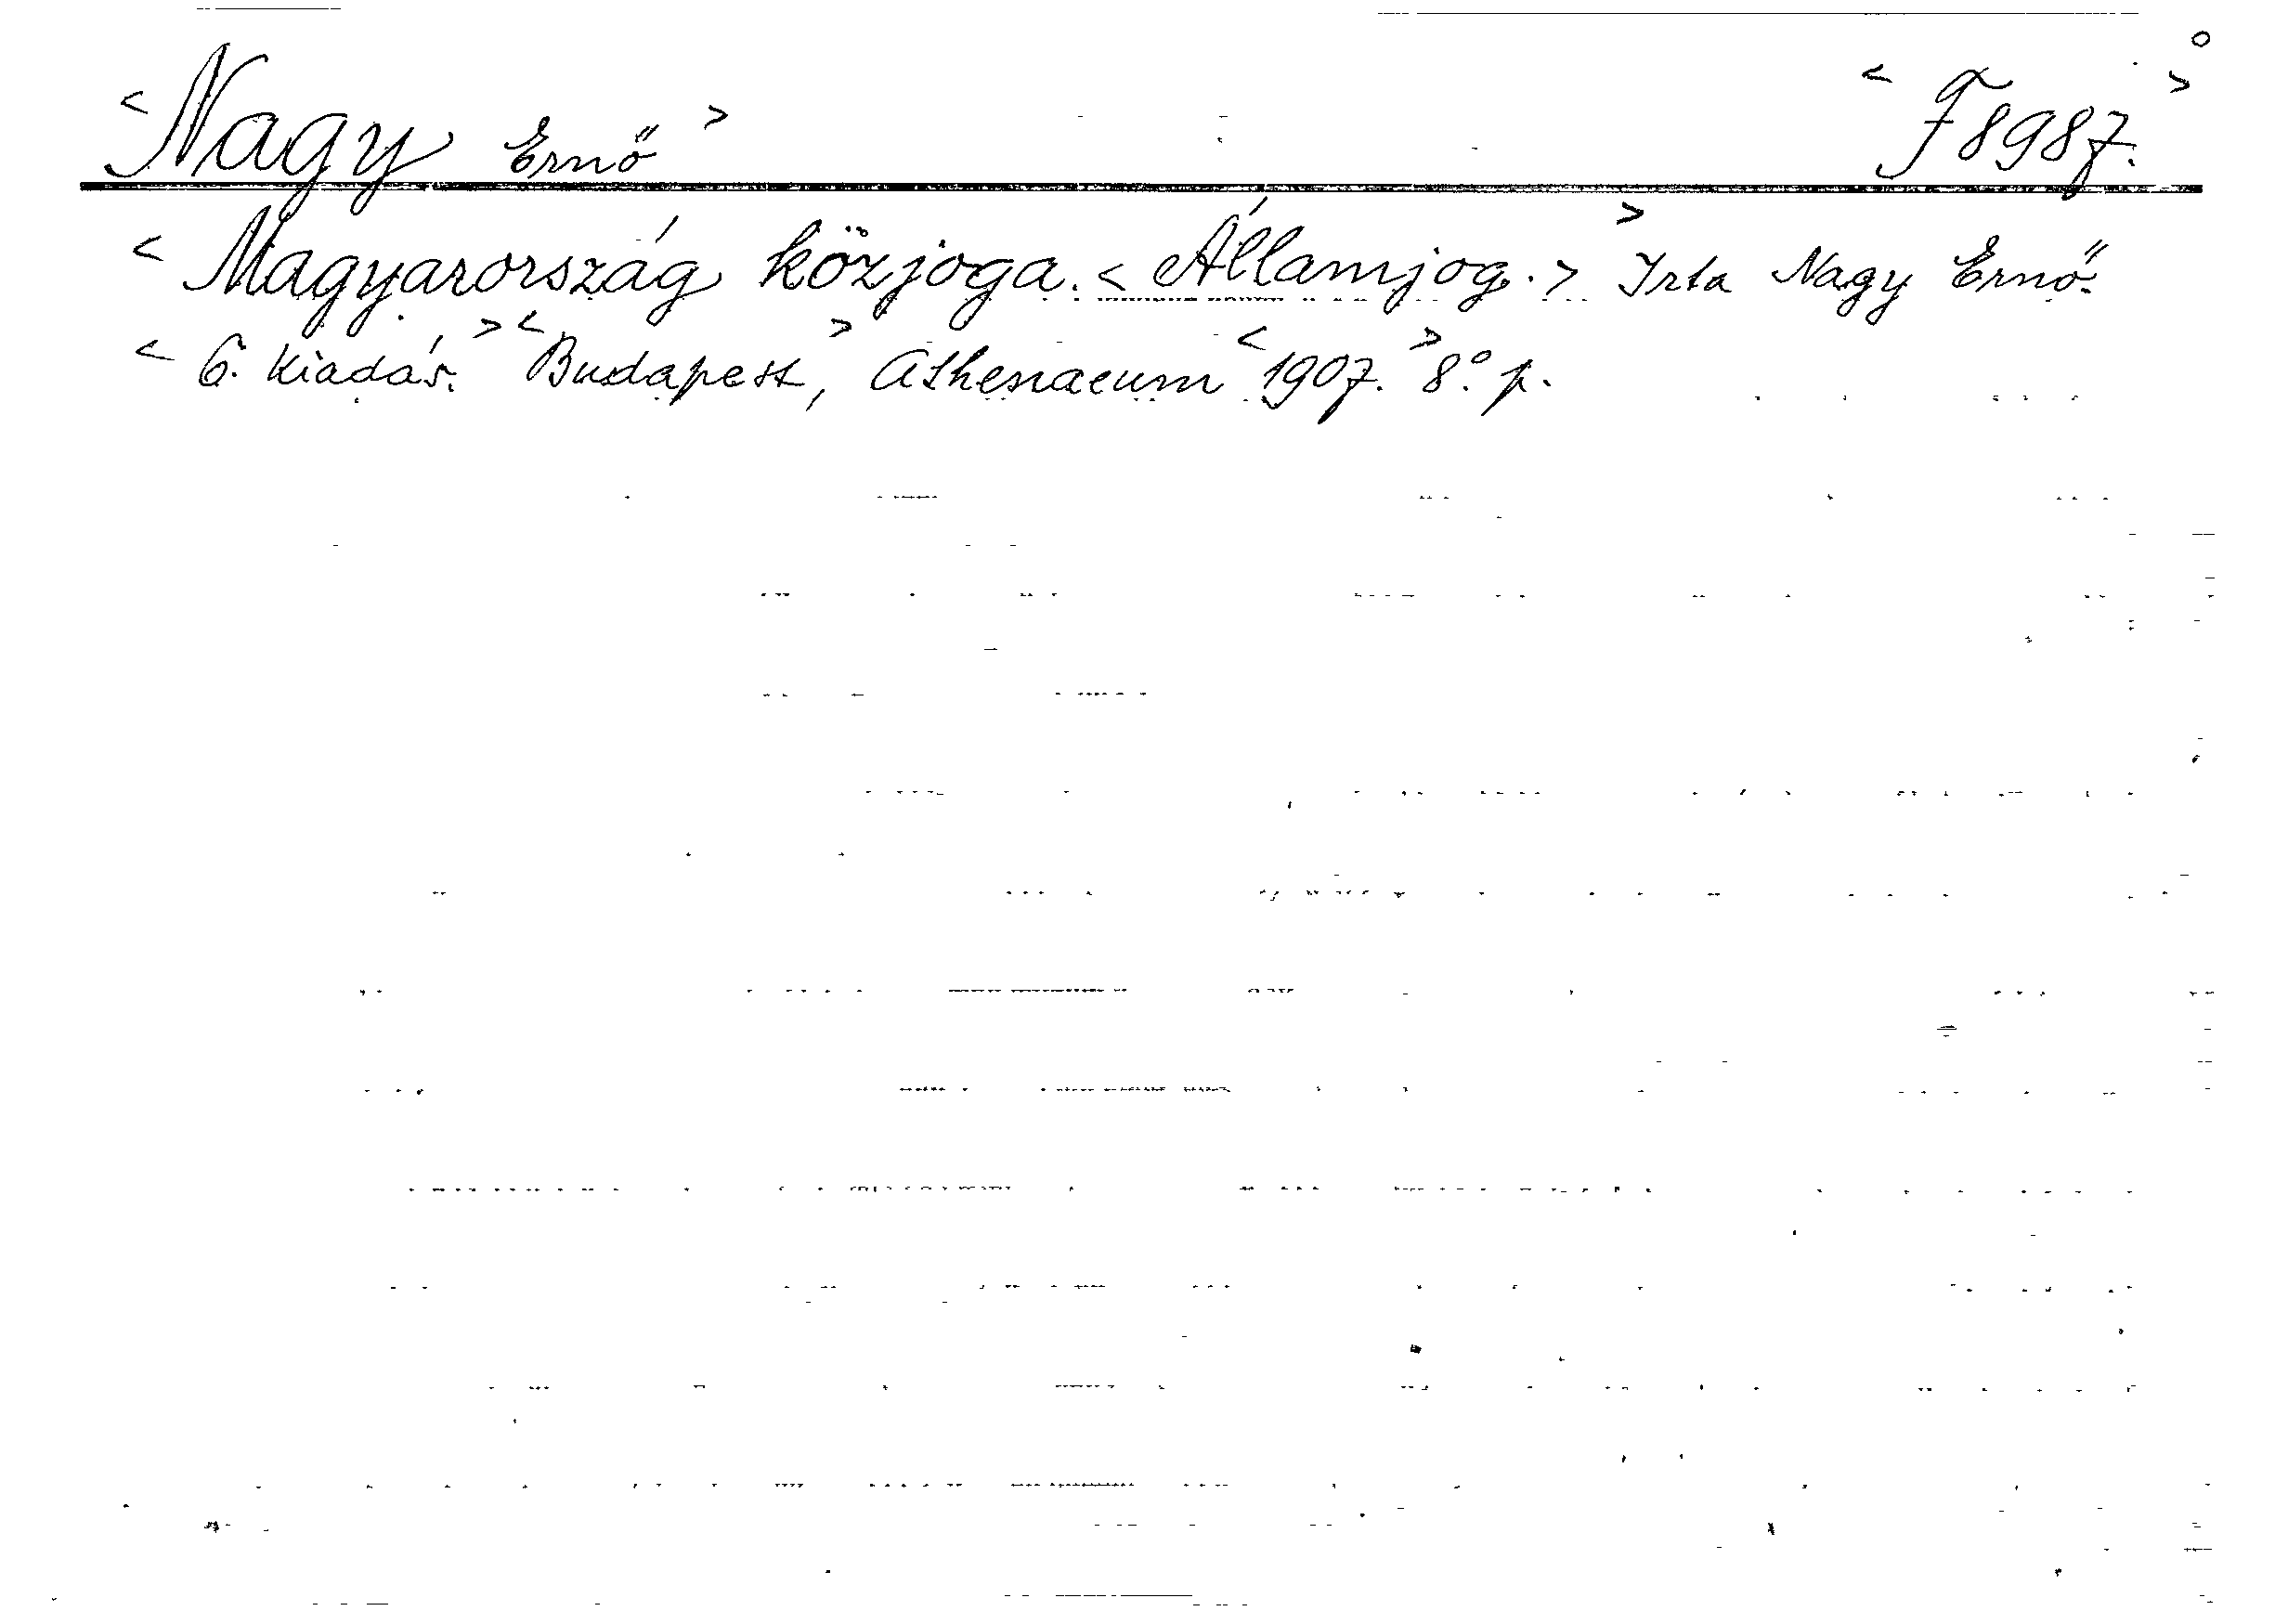 <Nagy Ernő> <F 8987.>
<Magyarország közjoga. <Államjog.>> Irta Nagy Ernő.
<6. kiadás.> <Budapest>, Athenaeum <1907.> 8.° p.